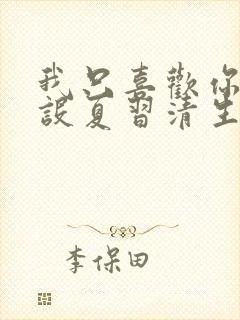 我只喜歡你
設夏習清生
李保田